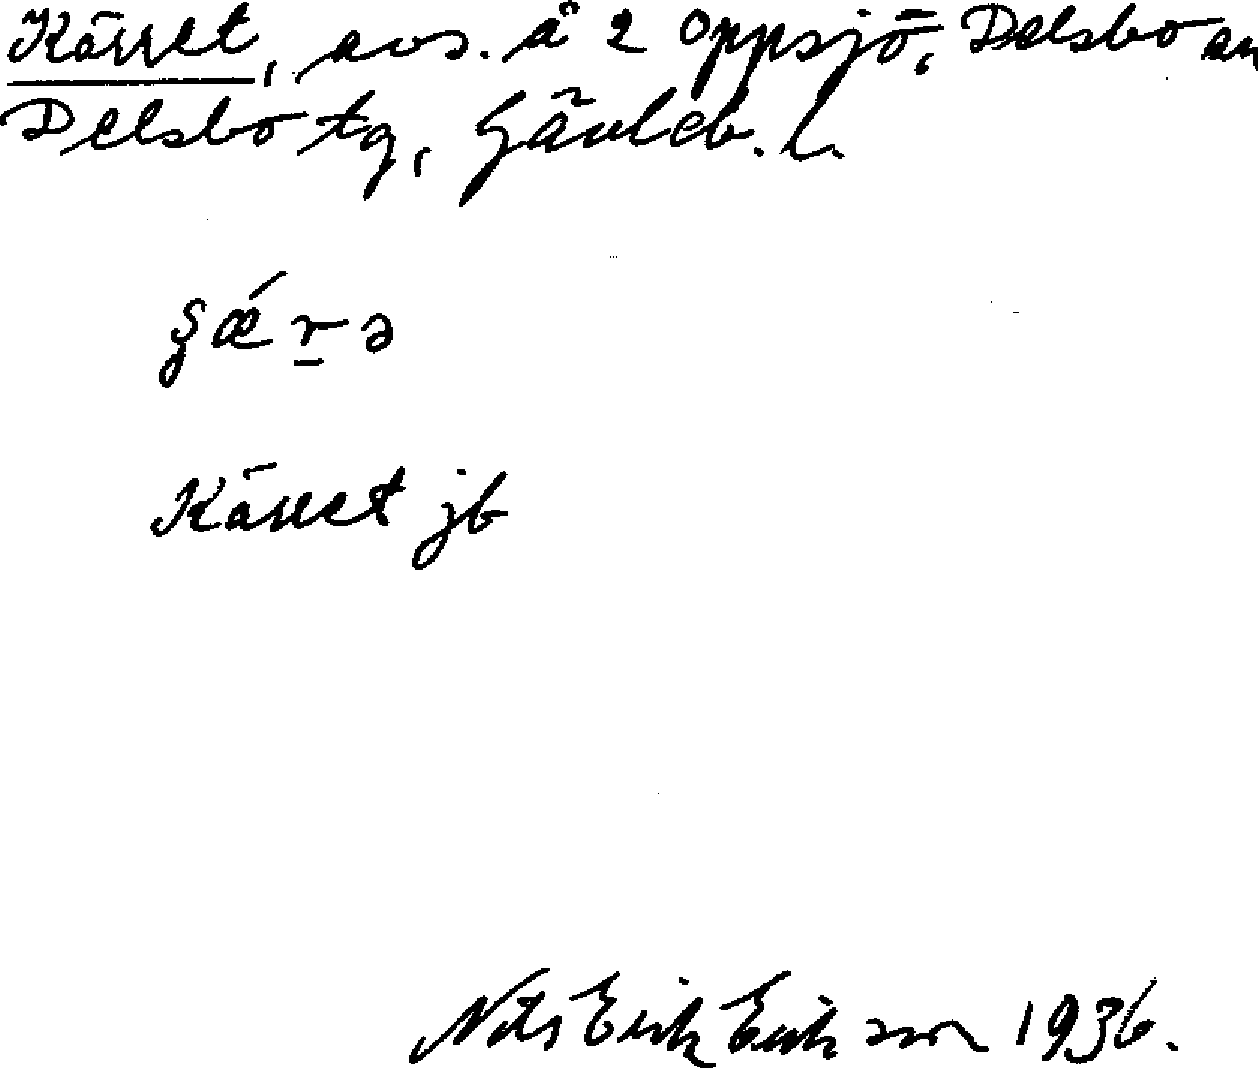 Kärret, avs. å 2 Oppsjö, Delsbo sn
Delsbo tg, Gävleb. l.
ʂǽr̠ə
Kärret jb
Nils Erik Eriksson 1936.